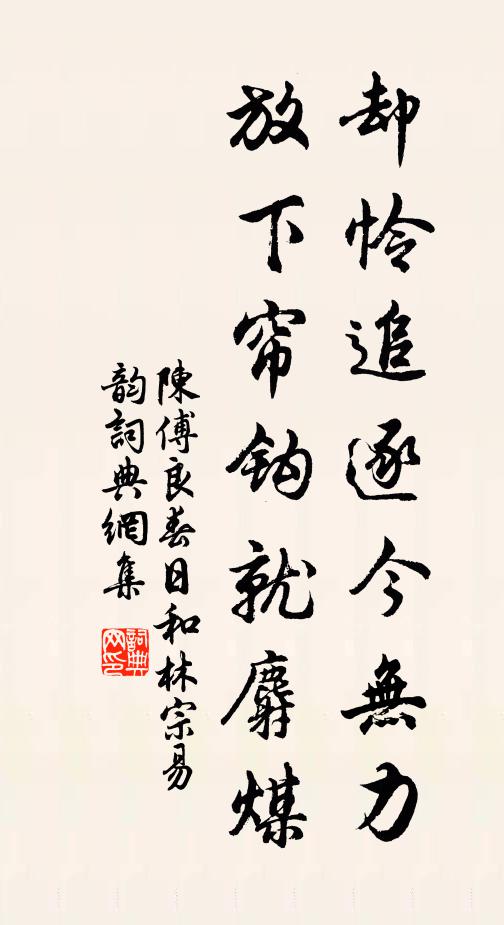 却怜追逐今無力
放下帘鈎就麝煤
陳傅良春日和林宗易
韵詞典網集
詞典
网印